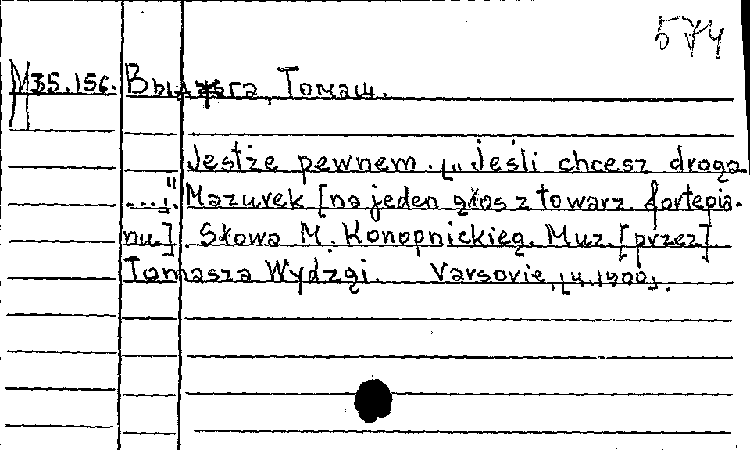 574
M35.156. Выджга, Томаш.
Jestże pewnem. „Jeśli chcesz droga
...". Mazurek [na jeden głos z towarz. fortepia-
nu.] Słowa M. Konopnickieg. Muz. [przez]
Tomasza Wydżgi. Varsovie, [ч.1900].